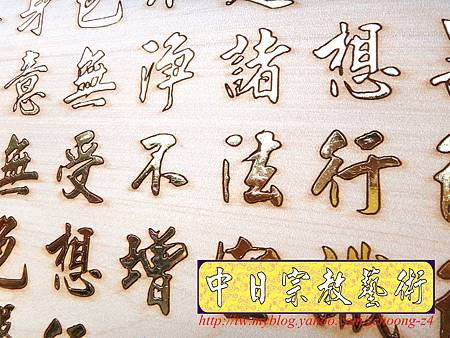 想行識
諸法空
淨不增
色無受想行
身意無色
中日宗教藝術
http://tw.myblog.yahoo.